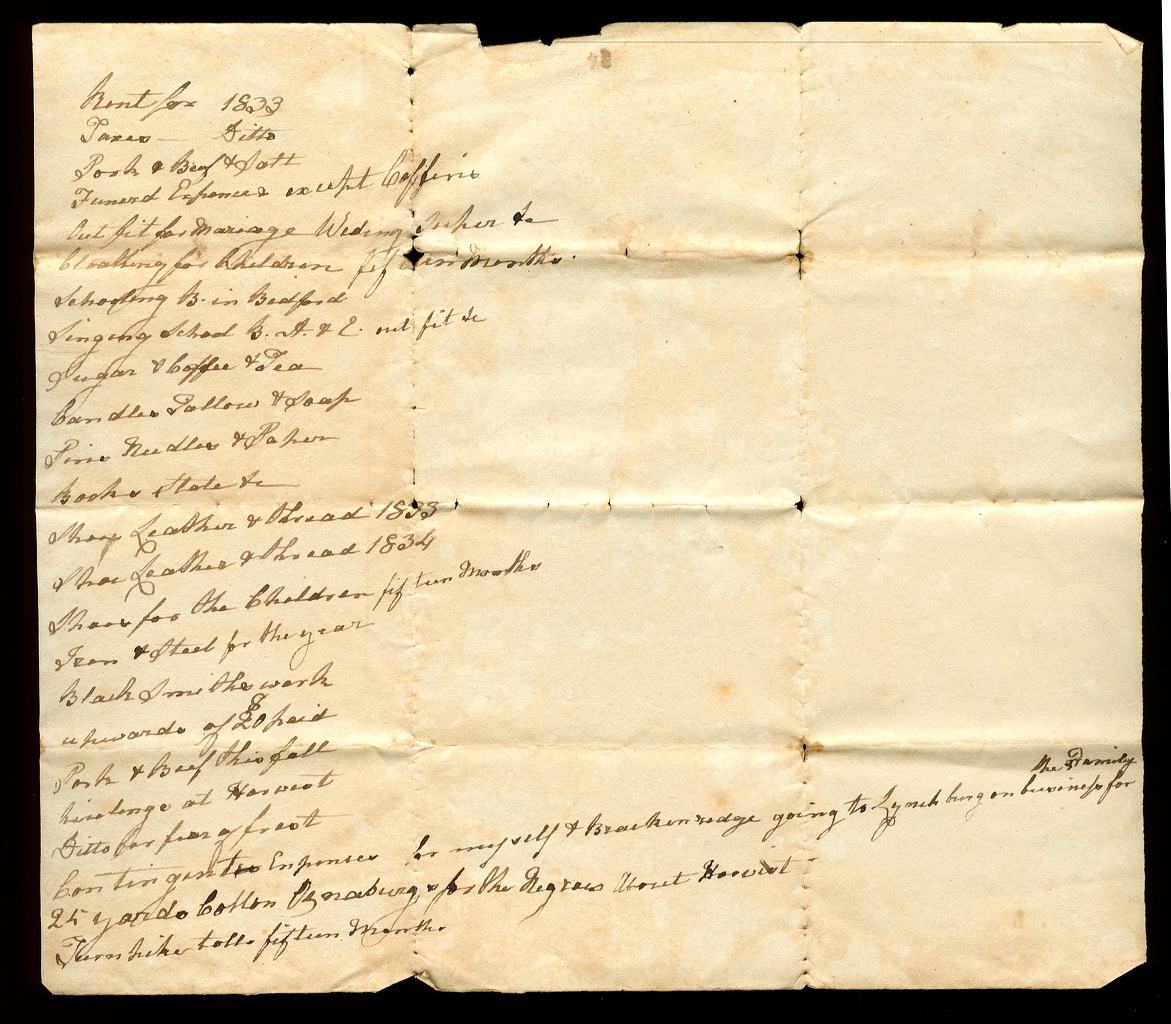 Rent for 1833
Taxes — Ditto
Pork & Beef & Salt
Funerd Expences except Coffins
Out fit for Mariage Weding Super &c
Cloathing for Children fifteen Months.
Schooling B. in Bedford
Singing School B. A. & E. out fit &c
Sugar & Coffee & Tea
Candles Tallow & Soap
Pins Needles & Paper
Books Slate &c
Shoe Leather & thread 1833
Shoe Leather & thread 1834
Shoes for the Children fifteen Months
Iron & Steel for the year
Black Smiths work
upwards of £20 paid
Pork & Beef this fall
hirelings at Harvest
Ditto for fear of frost
the Family
Contingent Expences for myself & Brackenredge going to Lynchburg on business for
25 yards Cotton Oznaburgs for the Negroes About Harvest
Turnpike tolls fifteen Months